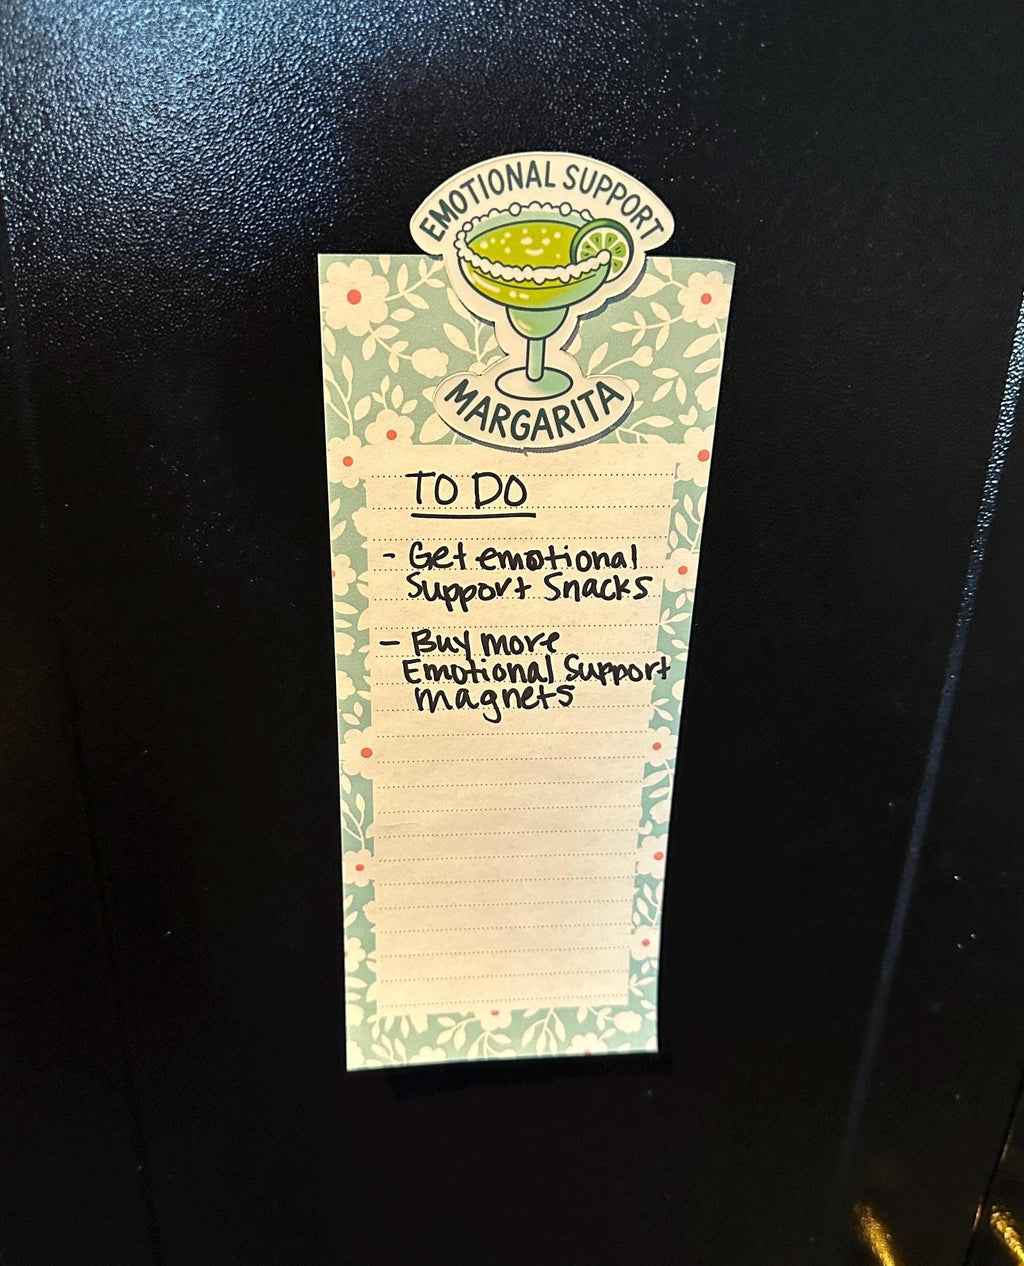 EMOTIONAL SUPPORT
MARGARITA
TO DO
- Get emotional
Support Snacks
- Buy more
Emotional Support
magnets